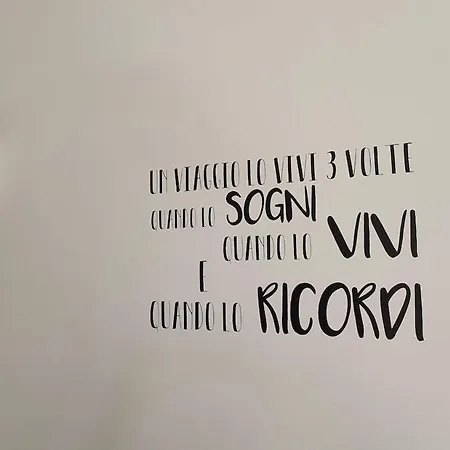 UN VIAGGIO LO VIVI 3 VOLTE
QUANDO LO SOGNI
QUANDO LO VIVI
E
QUANDO LO RICORDI